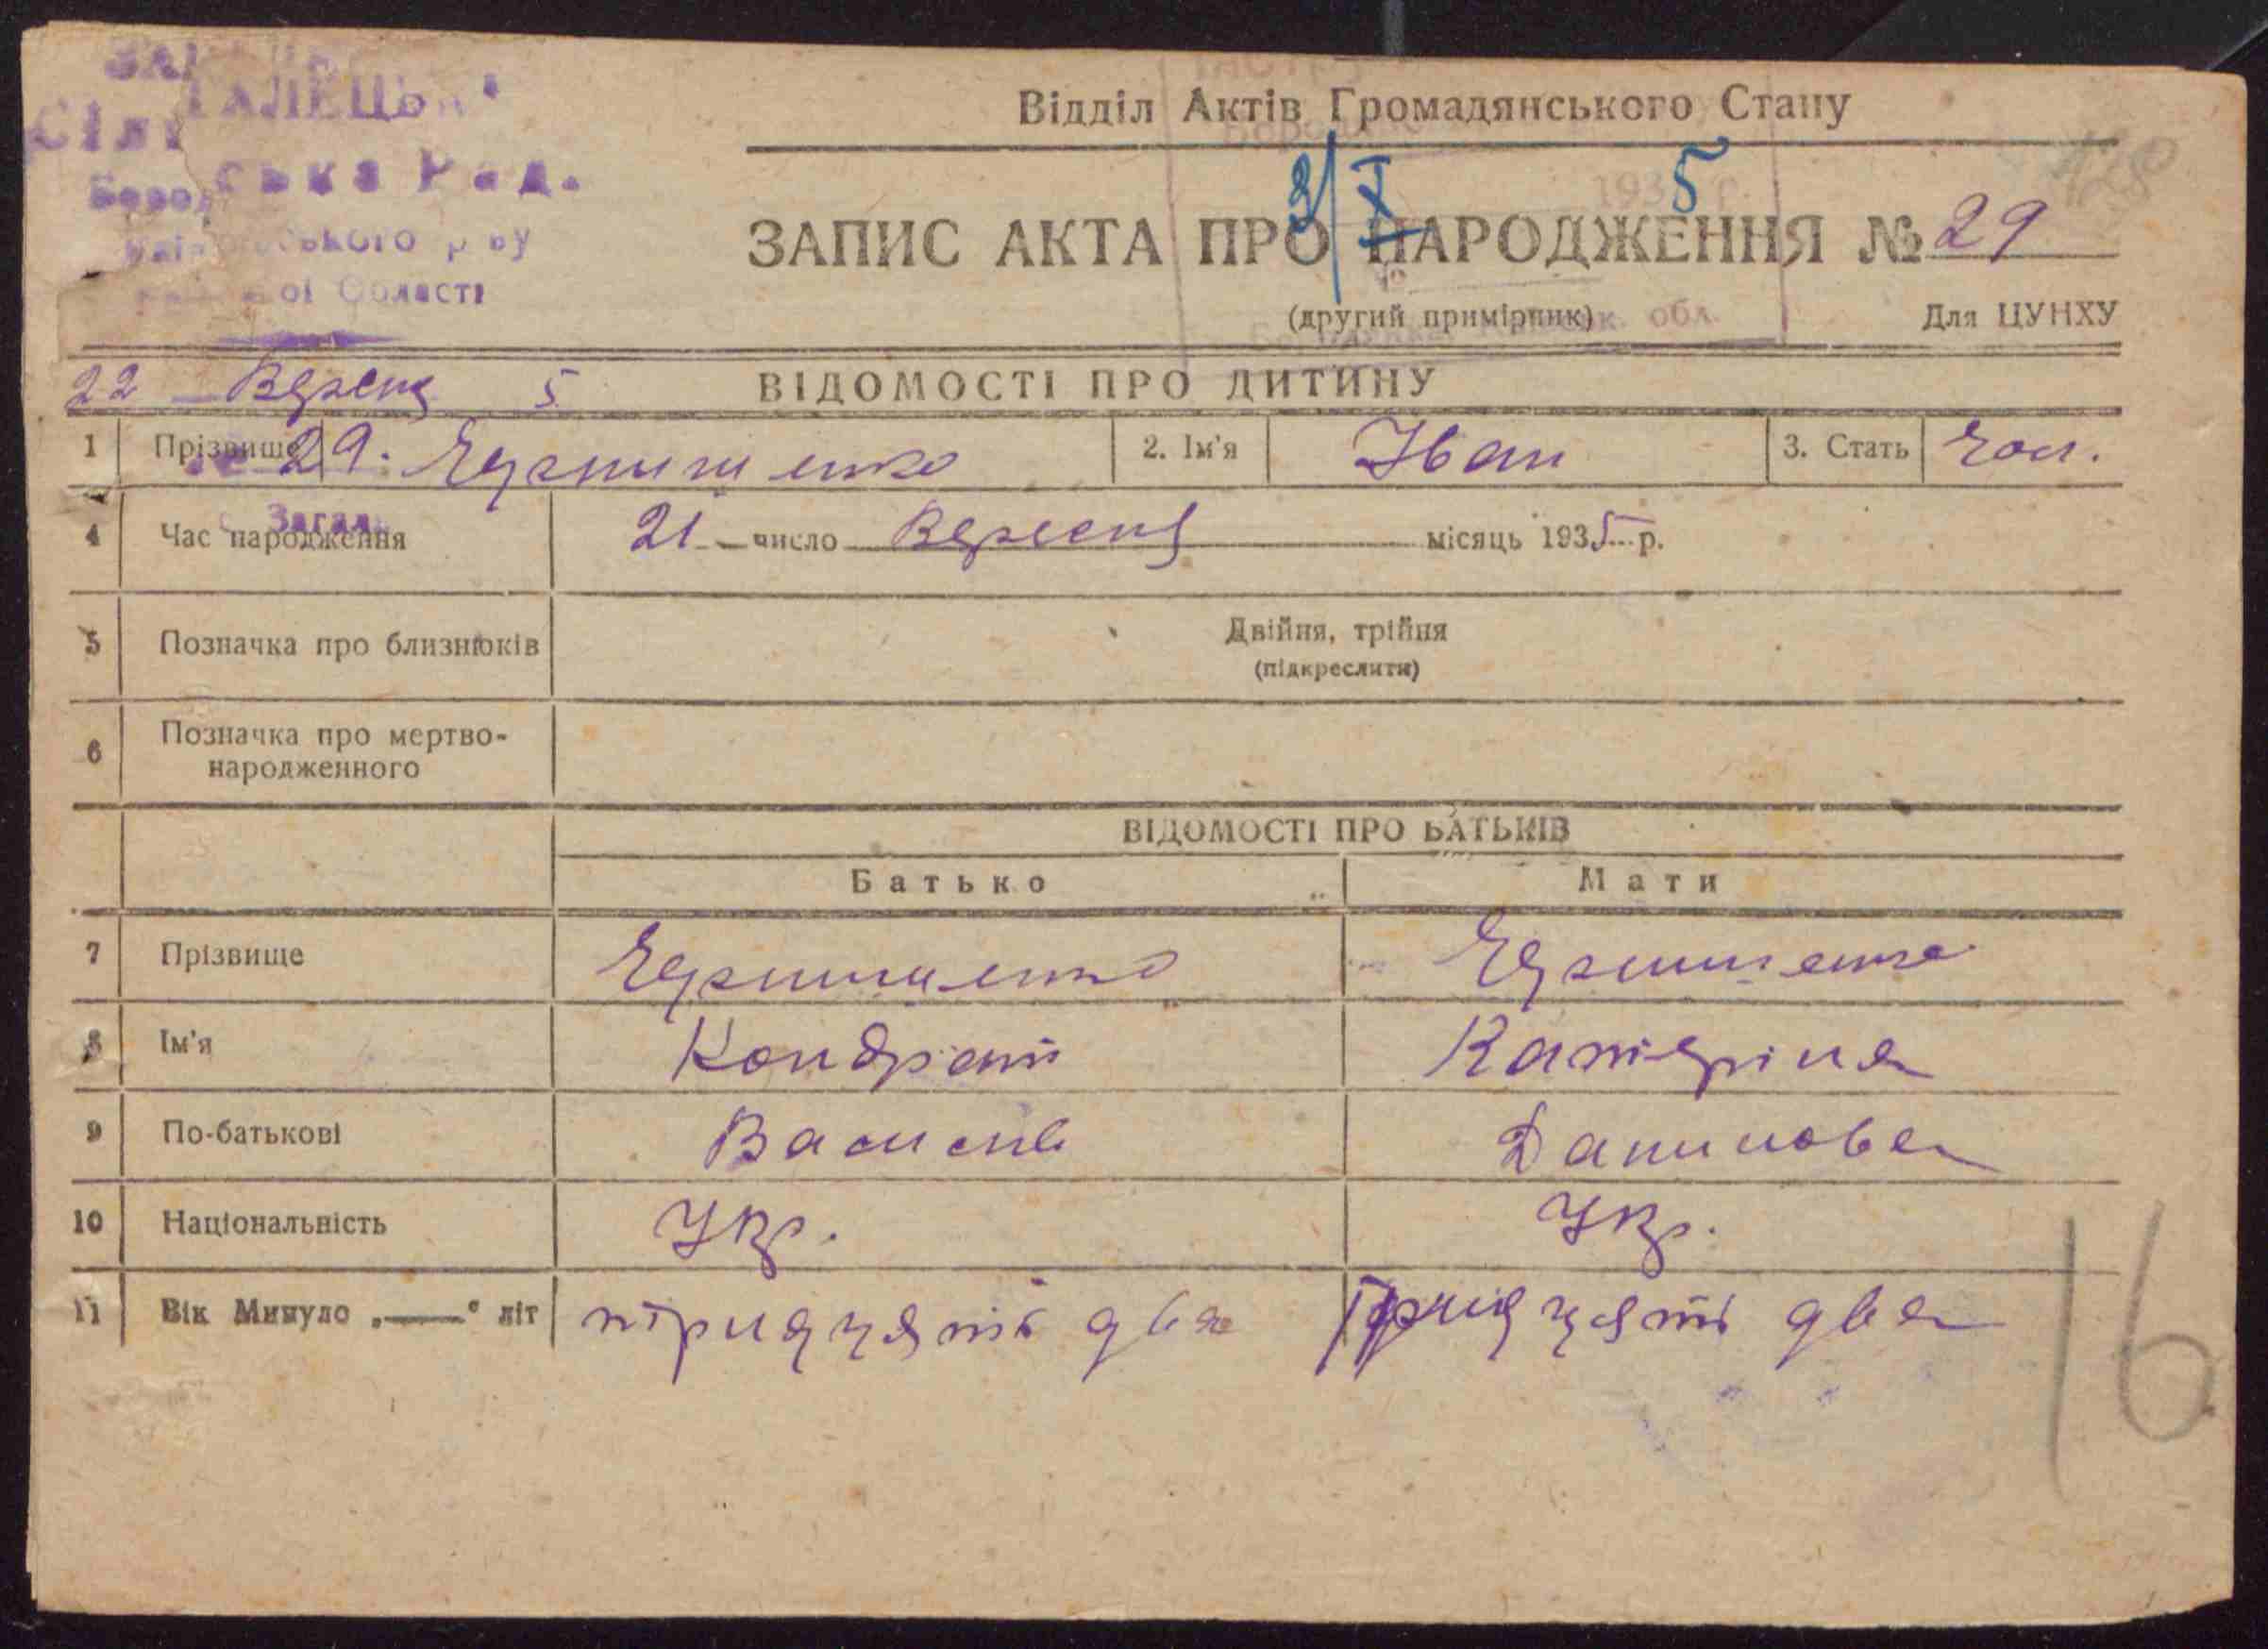 ГАЛЕЦЬК
Сіль ська Рад.
ої Області
Відділ Актів Громадянського Стану
3/X 1935 р.
ЗАПИС АКТА ПРО НАРОДЖЕННЯ № 29
(другий примірник) Для ЦУНХУ
обл.
22 Вересня 5
ВІДОМОСТІ ПРО ДИТИНУ
1 Прізвище 2. Ім'я Іван 3. Стать Чол.
№ 29.
с. Загал
4 Час народження 21 число Вересня місяць 1935 р.
5 Позначка про близнюків Двійня, трійня
(підкреслити)
6 Позначка про мертво-
народженного
ВІДОМОСТІ ПРО БАТЬКІВ
Батько Мати
7 Прізвище
8 Ім'я Кондрат Катеріна
9 По-батькові Василів Данилова
10 Національність Укр. Укр.
11 Вік Минуло „—“ літ тридцять два тридцять два
16